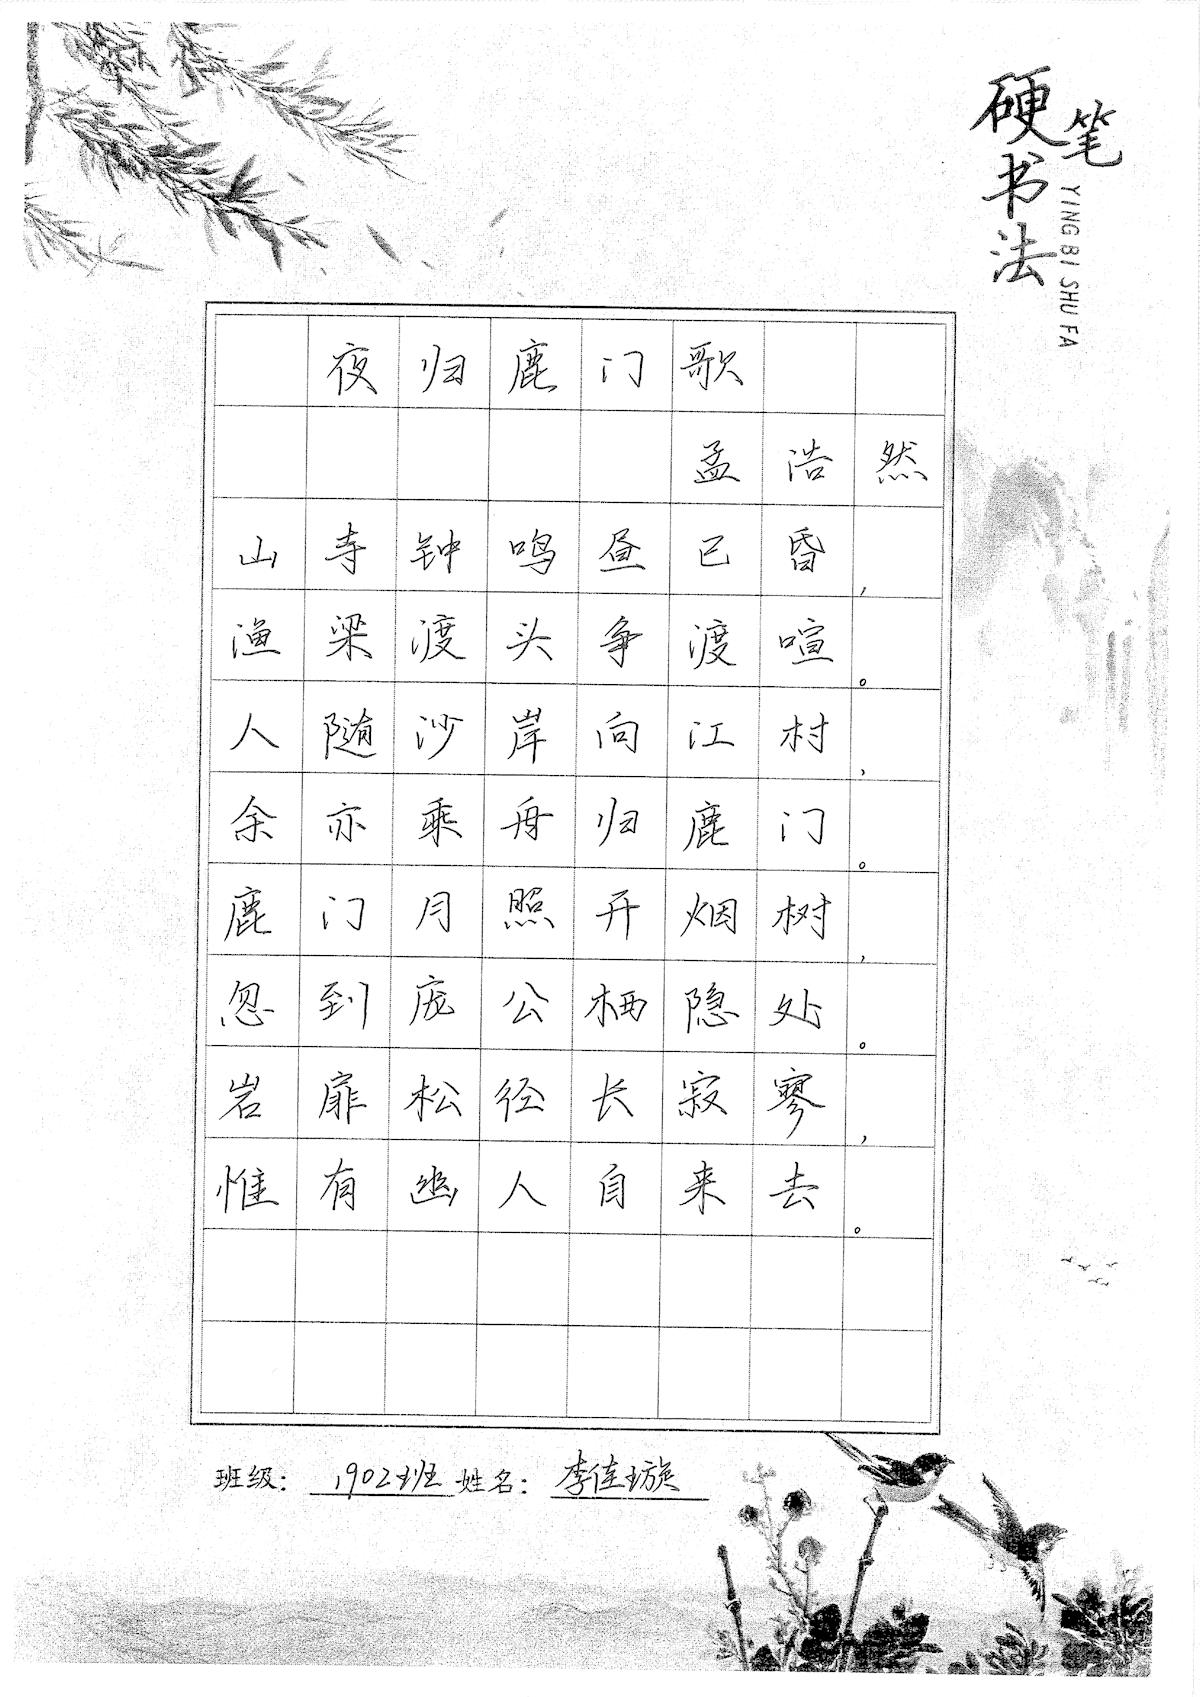 硬笔书法
YING BI SHU FA
夜归鹿门歌
孟浩然
山寺钟鸣昼已昏，
渔梁渡头争渡喧。
人随沙岸向江村，
余亦乘舟归鹿门。
鹿门月照开烟树，
忽到庞公栖隐处。
岩扉松径长寂寥，
惟有幽人自来去。
班级：1902班 姓名：李佳璇